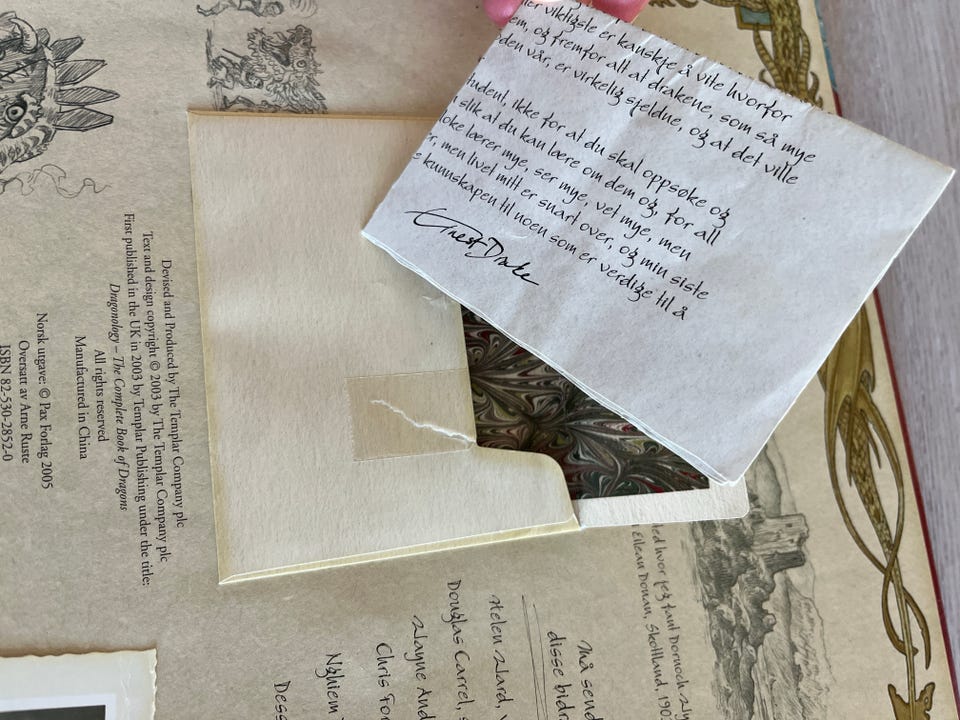 vikligste er kanskje å vite hvorfor
em, og fremfor alt at drakene, som så mye
den vår, er virkelig sjeldne, og at det ville
tudent, ikke for at du skal oppsøke og
slik at du kan lære om dem og, for all
loke lærer mye, ser mye, vet mye, men
r, men livet mitt er snart over, og min siste
e kunnskapen til noen som er verdige til å
Ernest Drake
Devised and Produced by The Templar Company plc
Text and design copyright © 2003 by The Templar Company plc
First published in the UK in 2003 by Templar Publishing under the title:
Dragonology – The Complete Book of Dragons
All rights reserved
Manufactured in China
Norsk utgave: © Pax Forlag 2005
Oversatt av Arne Ruste
ISBN 82-530-2852-0
led hvor jeg fant Dornoch-
Eilean Donan, Skottland, 190
Må send
disse bidr
Helen Ward, V
Douglas Carrel, s
Wayne And
Chris For
Nghiem
Dess